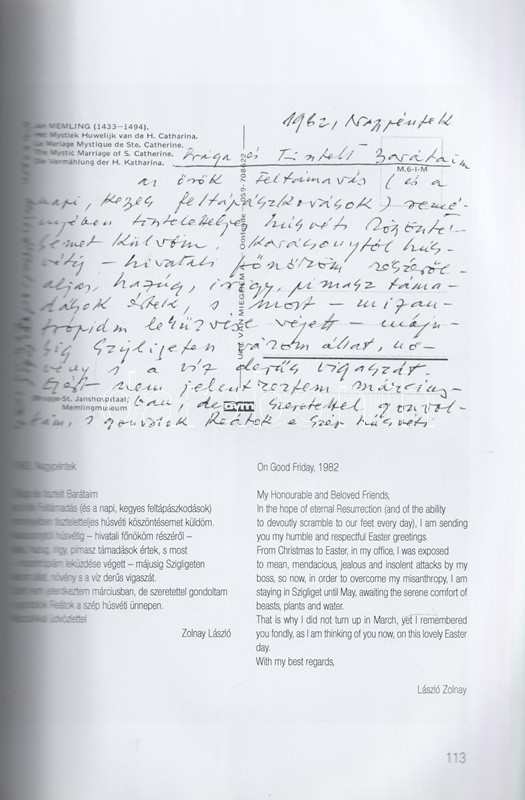 MEMLING (1433—1494).
Mystiek Huwelijk van de H. Catharina.
Mariage Mystique de Ste. Catherine.
The Mystic Marriage of S. Catherine.
Die Vermählung der H. Katharina.
M.6-I-M
Oostende - 059-708622
UITG. VAN MIEGHEM
St. Janshospitaal,
Memlingmuseum
1982, Nagypéntek
Drága és Tisztelt Barátaim
az örök Feltámadás (és a
napi, kegyes feltápászkodások) remé-
nyében tiszteletteljes húsvéti köszönté-
semet küldöm. Karácsonytól hús-
vétig – hivatali főnököm részéről –
aljas, hazug, irigy, pimasz táma-
dások értek, s most – mizan-
tropiám leküzdése végett – máju-
sig Szigligeten várom állat, nö-
vény s a víz derűs vigaszát.
Ezért nem jelentkeztem március-
ban, de szeretettel gondol-
tam, s gondolok Reátok e szép húsvéti
Nagypéntek
tisztelt Barátaim
Feltámadás (és a napi, kegyes feltápászkodások)
tiszteletteljes húsvéti köszöntésemet küldöm.
húsvétig – hivatali főnököm részéről –
irigy, pimasz támadások értek, s most
leküzdése végett – májusig Szigligeten
állat, növény s a víz derűs vigaszát.
nem jelentkeztem márciusban, de szeretettel gondoltam
Reátok a szép húsvéti ünnepen.
üdvözlettel
Zolnay László
On Good Friday, 1982
My Honourable and Beloved Friends,
In the hope of eternal Resurrection (and of the ability
to devoutly scramble to our feet every day), I am sending
you my humble and respectful Easter greetings.
From Christmas to Easter, in my office, I was exposed
to mean, mendacious, jealous and insolent attacks by my
boss, so now, in order to overcome my misanthropy, I am
staying in Szigliget until May, awaiting the serene comfort of
beasts, plants and water.
That is why I did not turn up in March, yet I remembered
you fondly, as I am thinking of you now, on this lovely Easter
day.
With my best regards,
László Zolnay
113